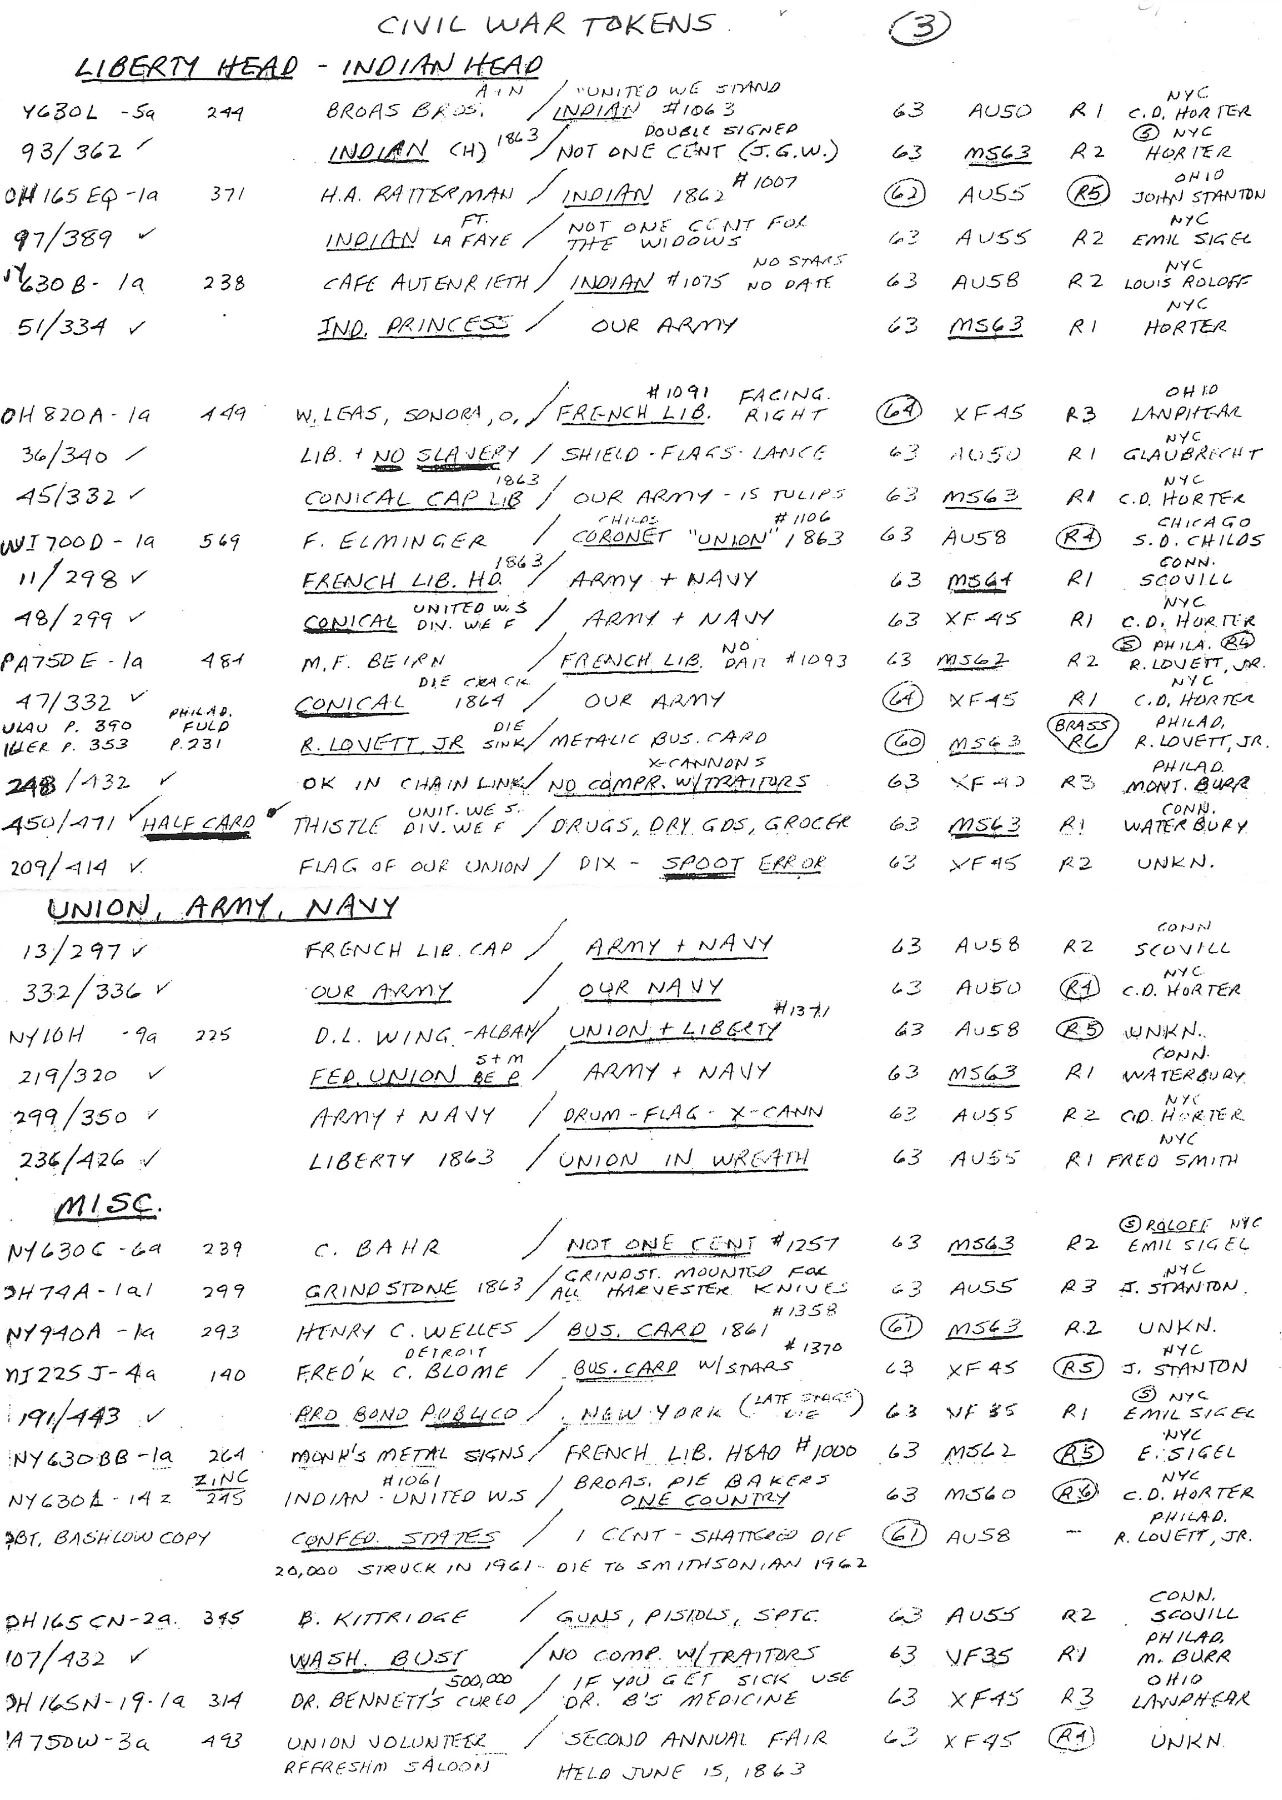 CIVIL WAR TOKENS 3
LIBERTY HEAD - INDIAN HEAD
NYC
AIN / "UNITED WE STAND
Y630L -5a 244 BROAS BROS. / INDIAN #1063 63 AU50 R1 C.D. HORTER
1863 DOUBLE SIGNED Ⓢ NYC
93/362 ✓ INDIAN (H) / NOT ONE CENT (J.G.W.) 63 MS63 R2 HORTER
#1007 OHIO
OH165EQ-1a 371 H.A. RATTERMAN / INDIAN 1862 62 AU55 R5 JOHN STANTON
FT. NOT ONE CENT FOR NYC
97/389 ✓ INDIAN LA FAYE / THE WIDOWS 63 AU55 R2 EMIL SIGEL
NO STARS NYC
NY630B-1a 238 CAFE AUTENRIETH / INDIAN #1075 NO DATE 63 AU58 R2 LOUIS ROLOFF
NYC
51/334 ✓ IND. PRINCESS / OUR ARMY 63 MS63 R1 HORTER
#1091 FACING. OHIO
OH820A-1a 449 W. LEAS, SONORA, O. / FRENCH LIB. RIGHT 64 XF45 R3 LANPHEAR
NYC
36/340 ✓ LIB. + NO SLAVERY / SHIELD-FLAGS-LANCE 63 AU50 R1 GLAUBRECHT
1863 NYC
45/332 ✓ CONICAL CAP LIB / OUR ARMY - 15 TULIPS 63 MS63 R1 C.D. HORTER
CHILDS #1106 CHICAGO
WI700D-1a 569 F. ELMINGER / CORONET "UNION" 1863 63 AU58 R4 S.D. CHILDS
1863 CONN.
11/298 ✓ FRENCH LIB. HD. / ARMY + NAVY 63 MS64 R1 SCOVILL
UNITED W. S NYC
48/299 ✓ CONICAL DIV. WE F / ARMY + NAVY 63 XF45 R1 C.D. HORTER
NO Ⓢ PHILA. R4
PA750E-1a 484 M.F. BEIRN / FRENCH LIB. DATE #1093 63 MS62 R2 R. LOVETT, JR.
DIE CRACK NYC
47/332 ✓ CONICAL 1864 / OUR ARMY 64 XF45 R1 C.D. HORTER
ULAU P. 390 PHILAD. FULD DIE BRASS PHILAD,
P. 353 P.231 R. LOVETT JR SINK / METALIC BUS. CARD 60 MS63 R6 R. LOVETT, JR.
X-CANNONS PHILAD.
248/432 ✓ OK IN CHAIN LINK / NO COMPR. W/TRAITORS 63 XF40 R3 MONT. BURR
UNIT. WE S. CONN.
450/471 ✓ HALF CARD THISTLE DIV. WE F / DRUGS, DRY GDS, GROCER 63 MS63 R1 WATERBURY
209/414 ✓ FLAG OF OUR UNION / DIX - SPOOT ERROR 63 XF45 R2 UNKN.
UNION, ARMY, NAVY
CONN
13/297 ✓ FRENCH LIB. CAP / ARMY + NAVY 63 AU58 R2 SCOVILL
NYC
332/336 ✓ OUR ARMY / OUR NAVY 63 AU50 R4 C.D. HORTER
#1371
NY10H -9a 225 D.L. WING -ALBANY / UNION + LIBERTY 63 AU58 R5 UNKN.
S+M CONN.
219/320 ✓ FED. UNION BE P / ARMY + NAVY 63 MS63 R1 WATERBURY
NYC
299/350 ✓ ARMY + NAVY / DRUM-FLAG-X-CANN 63 AU55 R2 C.D. HORTER
NYC
236/426 ✓ LIBERTY 1863 / UNION IN WREATH 63 AU55 R1 FRED SMITH
MISC.
Ⓢ ROLOFF NYC
NY630C-6a 239 C. BAHR / NOT ONE CENT #1257 63 MS63 R2 EMIL SIGEL
GRINDST. MOUNTED FOR NYC
OH74A-1a1 299 GRINDSTONE 1863 / ALL HARVESTER KNIVES 63 AU55 R3 J. STANTON.
#1358
NY940A-1a 293 HENRY C. WELLES / BUS. CARD 1861 61 MS63 R.2 UNKN.
DETROIT #1370 NYC
MI225J-4a 140 FRED'K C. BLOME / BUS. CARD W/STARS 63 XF45 R5 J. STANTON
(LATE STAGE DIE) Ⓢ NYC
191/443 ✓ PRO BONO PUBLICO / NEW YORK 63 VF35 R1 EMIL SIGEL
NYC
NY630BB-1a 264 MONK'S METAL SIGNS / FRENCH LIB. HEAD #1000 63 MS62 R5 E. SIGEL
ZINC #1061 BROAS. PIE BAKERS NYC
NY630L-14z 245 INDIAN-UNITED W.S / ONE COUNTRY 63 MS60 R6 C.D. HORTER
PHILAD.
BT. BASHLOW COPY CONFED. STATES / 1 CENT - SHATTERED DIE 61 AU58 - R. LOVETT, JR.
20,000 STRUCK IN 1961 - DIE TO SMITHSONIAN 1962
CONN.
OH165CN-2a. 345 B. KITTRIDGE / GUNS, PISTOLS, SPTG. 63 AU55 R2 SCOVILL
PHILAD.
107/432 ✓ WASH. BUST / NO COMP. W/TRAITORS 63 VF35 R1 M. BURR
500,000 IF YOU GET SICK USE OHIO
OH165N-19.1a 314 DR. BENNETT'S CURED / DR. B'S MEDICINE 63 XF45 R3 LANPHEAR
PA750W-3a 493 UNION VOLUNTEER / SECOND ANNUAL FAIR 63 XF45 R4 UNKN.
REFRESHM SALOON HELD JUNE 15, 1863